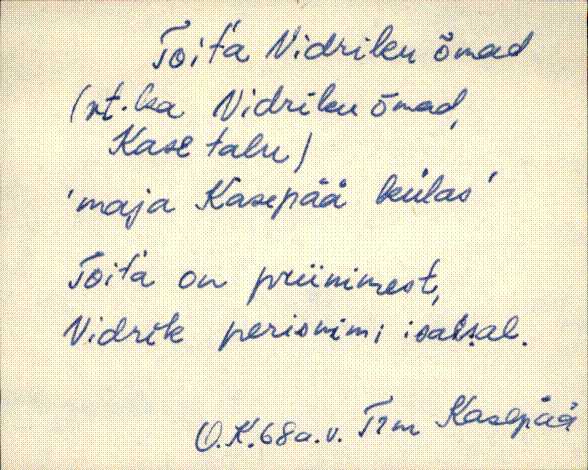 Toit'a Vidriku õmad
(vt. ka Vidriku õmad,
Kase talu)
'maja Kasepää külas'
Toit'a on priinimest,
Vidrik perisnimi isalsal.
O.K. 68 a. v. Trm Kasepää